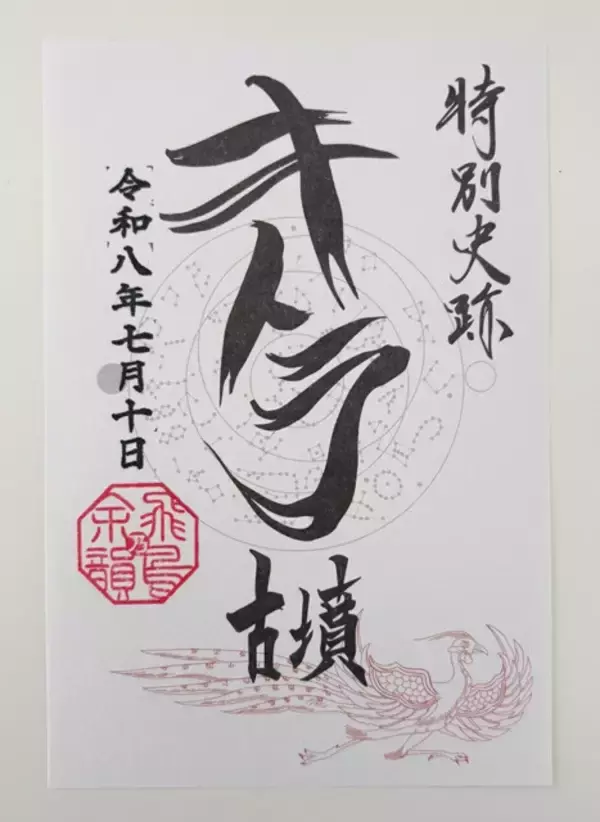 特別史跡
キトラ
古墳
令和八年七月十日
飛鳥乃余韻